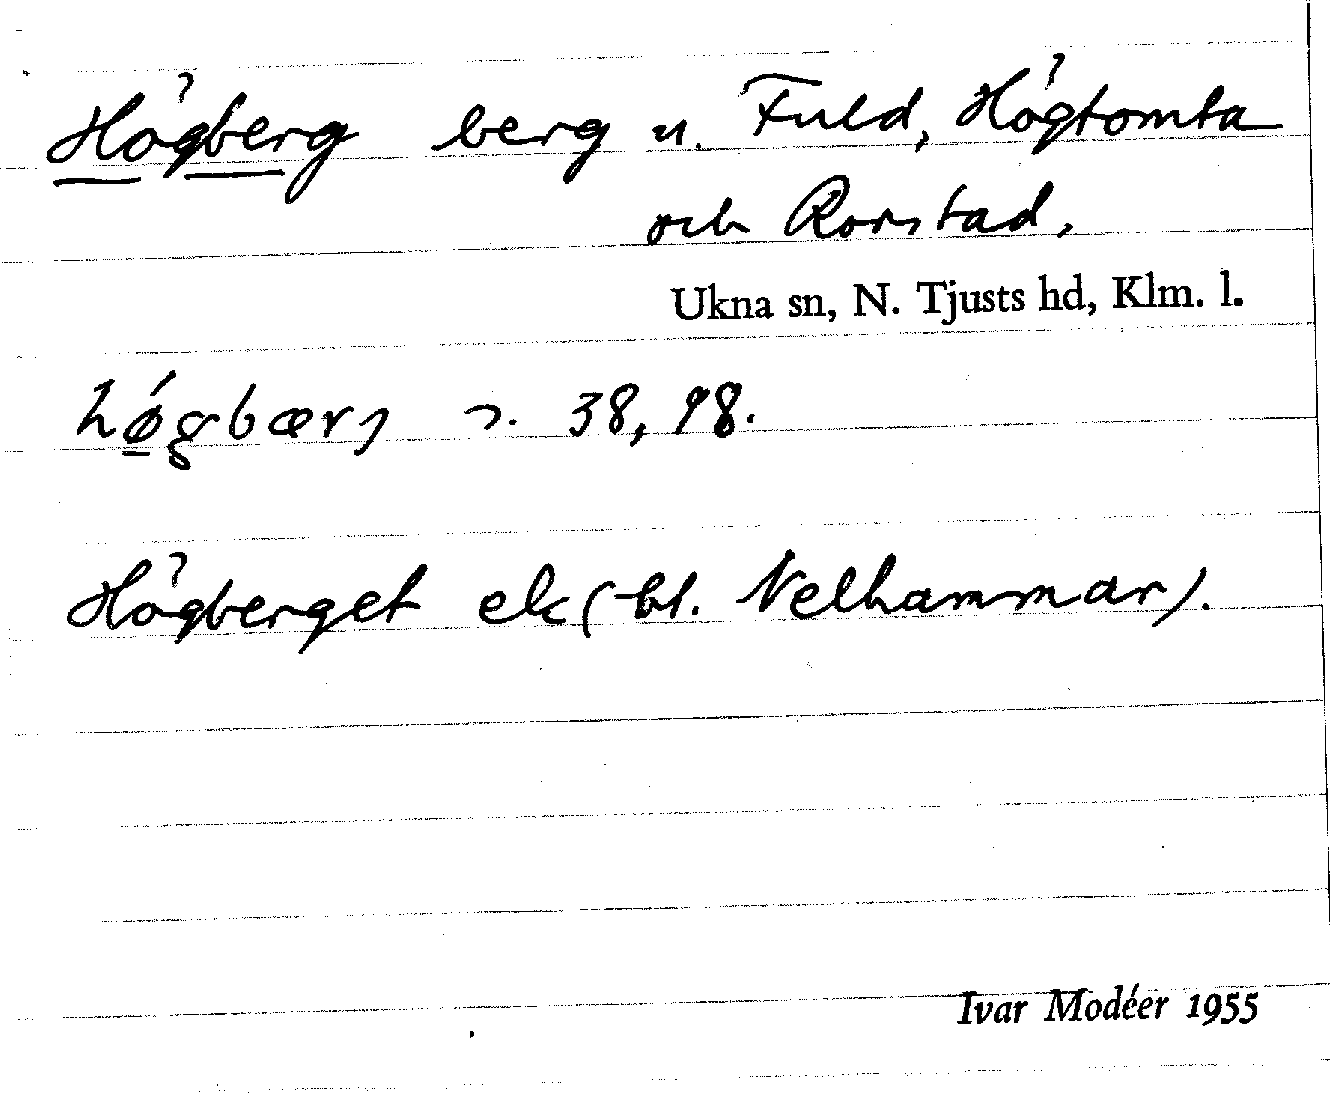 Högberg berg u. Fuld, Högtomta
och Rorstad,
Ukna sn, N. Tjusts hd, Klm. l.
38, 98.
Högberget ek (bl. Nelhammar).
Ivar Modéer 1955